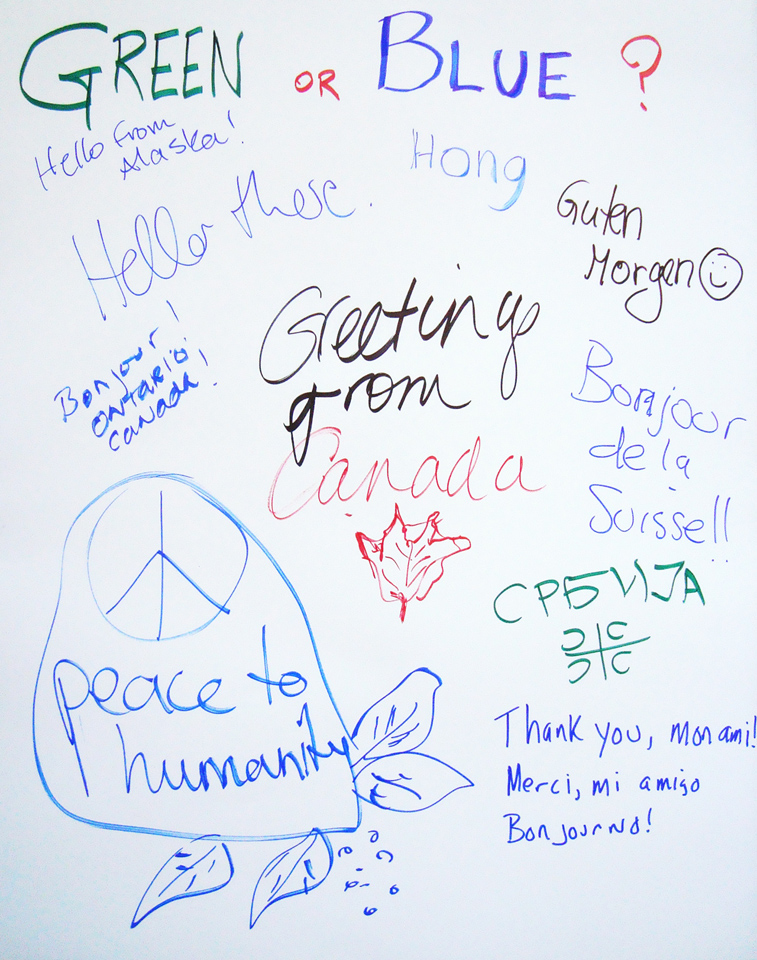 GREEN OR BLUE ?
Hello from
Alaska!
Hong
Hello there.
Guten
Morgen
Greetings
from
Canada
Bonjour!
ONTARIO
CANADA!
Bonjour
de la
Suisse!!
СРБИЈА
C C
C C
peace to
humanity
Thank you, mon ami!
Merci, mi amigo
Bonjourno!